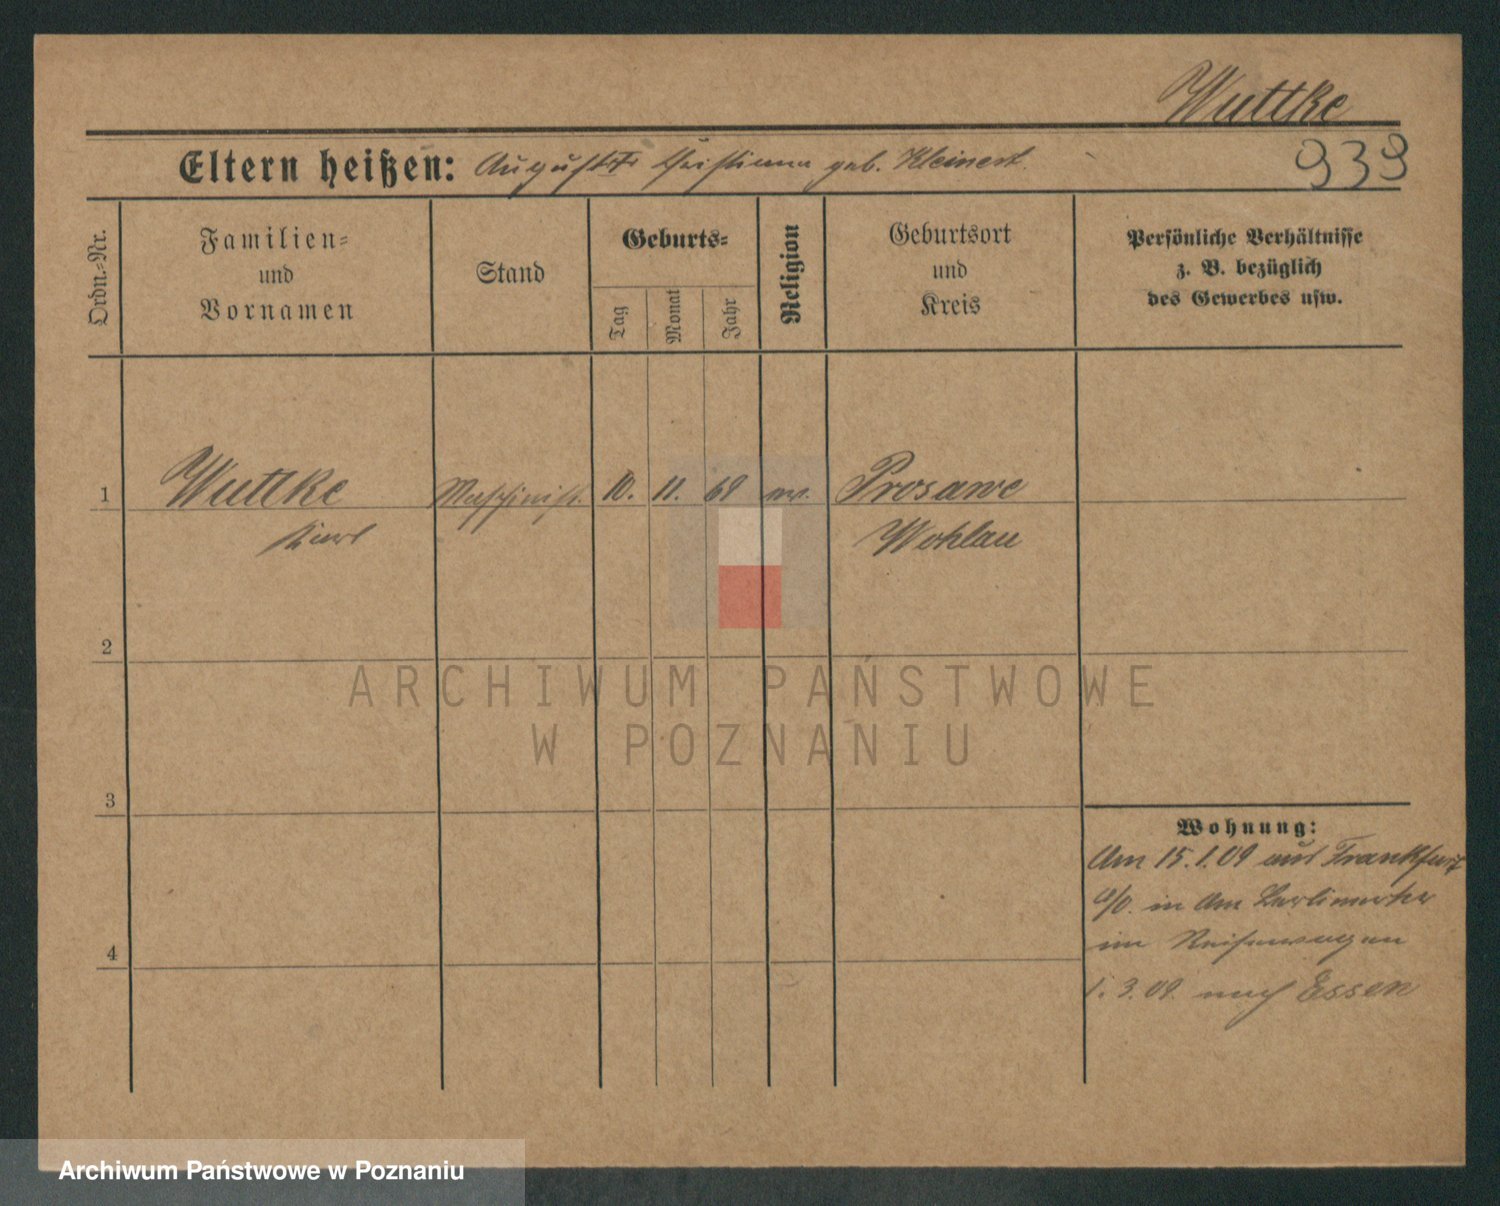 Wuttke
Eltern heißen: August Christiane geb. Kleinert.
939
Ordn.-Nr.
Familien-
und
Vornamen
Stand
Geburts-
Tag
Monat
Jahr
Religion
Geburtsort
und
Kreis
Persönliche Verhältnisse
z. B. bezüglich
des Gewerbes usw.
1
Wuttke
Maschinist.
10.
11.
68
ev.
Prosawe
Karl
Wohlau
2
ARCHIWUM PAŃSTWOWE
W POZNANIU
3
Wohnung:
Am 15.1.09 aus Frankfurt
a/O. in Am Berlinerthor
im
4
1.3.09. nach Essen
Archiwum Państwowe w Poznaniu